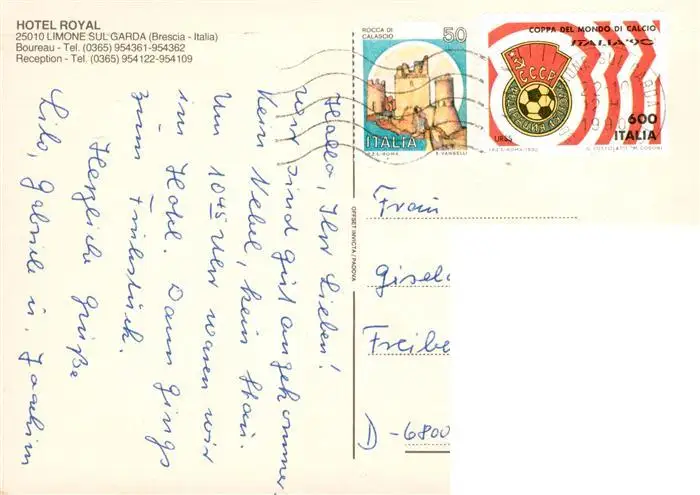 HOTEL ROYAL
25010 LIMONE SUL GARDA (Brescia - Italia)
Boureau - Tel. (0365) 954361-954362
Reception - Tel. (0365) 954122-954109
Hallo, Ihr Lieben!
Wir sind gut angekommen.
Kein Nebel, kein Stau.
Um 10 45 Uhr waren wir
im Hotel. Dann gings
zum Frühstück.
Herzliche Grüße
Lilo, Gabriele u. Joachim
OFFSET INVICTA / PADOVA
ROCCA DI
CALASCIO
50
ITALIA
I.P.Z.S.-ROMA E. VANGELLI
COPPA DEL MONDO DI CALCIO
ITALIA '90
C.C.C.P.
URSS
600
ITALIA
I.P.Z.S.-ROMA-1990
Frau
Gisel
Freibe
D-6800